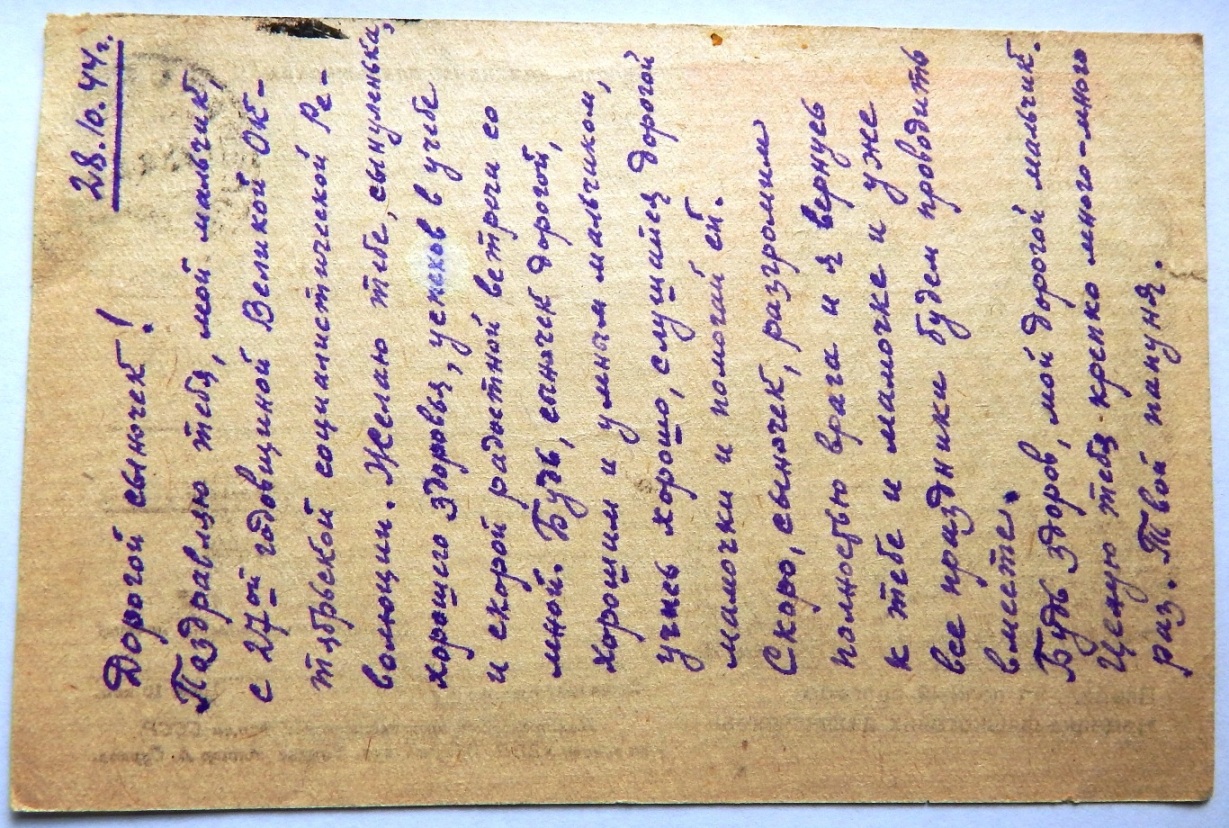 28.10.44г.
Дорогой сыночек!
Паздравлю тебя, мой мальчик,
с 27ой годовщиной Великой Ок-
тябрьской социалистической Ре-
волюции. Желаю тебе, сынуленька,
хорошего здоровья, успехов в учебе
и скорой радостной встречи со
мной. Будь, сыночек дорогой,
хорошим и умным мальчиком,
учись хорошо, слушайся дорогой
мамочки и помогай ей.
Скоро, сыночек, разгромим
полностью врага и я вернусь
к тебе и мамочке и уже
все праздники будем проводить
вместе.
Будь здоров, мой дорогой мальчик.
Целую тебя крепко много-много
раз. Твой папуня.